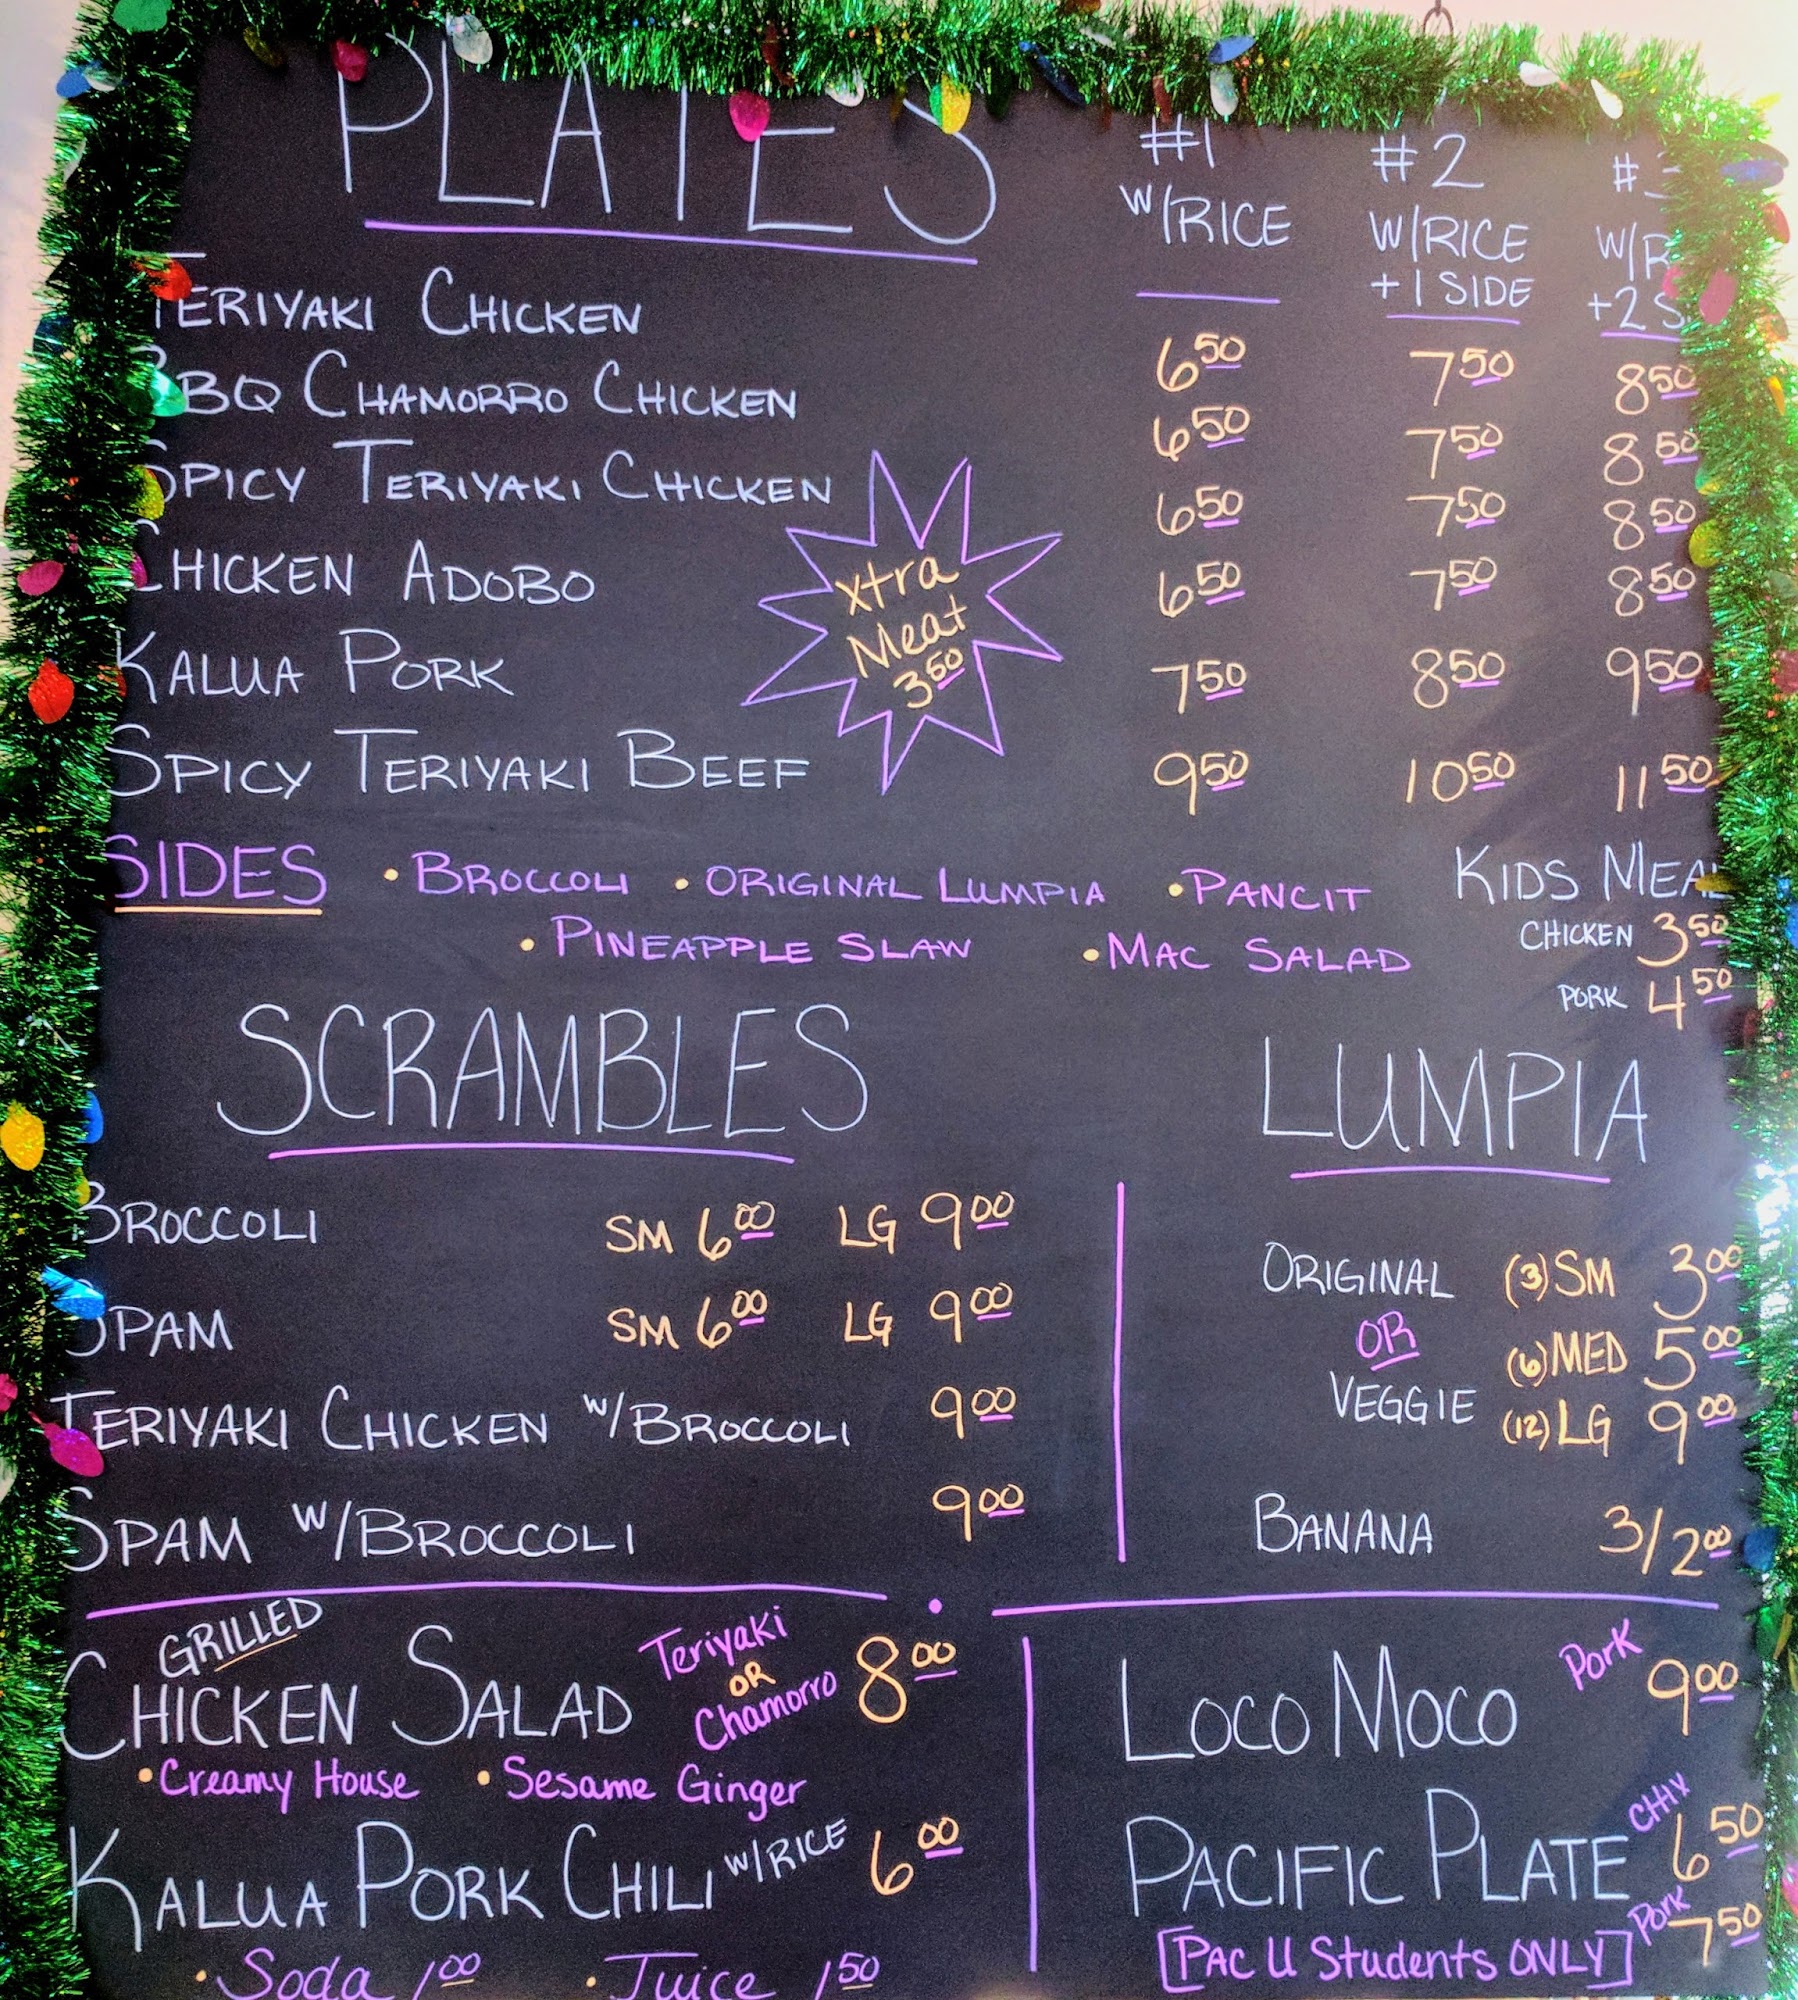 PLATES #1 #2 #3
W/RICE W/RICE W/R
+1 SIDE +2 S
TERIYAKI CHICKEN 650 750 850
BBQ CHAMORRO CHICKEN 650 750 850
SPICY TERIYAKI CHICKEN 650 750 850
CHICKEN ADOBO 650 750 850
KALUA PORK 750 850 950
SPICY TERIYAKI BEEF 950 1050 1150
xtra
Meat
350
SIDES • BROCCOLI • ORIGINAL LUMPIA • PANCIT
• PINEAPPLE SLAW • MAC SALAD
KIDS MEAL
CHICKEN 350
PORK 450
SCRAMBLES
BROCCOLI SM 600 LG 900
SPAM SM 600 LG 900
TERIYAKI CHICKEN W/BROCCOLI 900
SPAM W/BROCCOLI 900
LUMPIA
ORIGINAL (3) SM 300
OR (6) MED 500
VEGGIE (12) LG 900
BANANA 3/200
GRILLED
CHICKEN SALAD Teriyaki OR Chamorro 800
• Creamy House • Sesame Ginger
KALUA PORK CHILI W/RICE 600
• Soda 100 • Juice 150
LOCO MOCO Pork 900
PACIFIC PLATE CHIX 650
Pork 750
[PAC U Students ONLY]